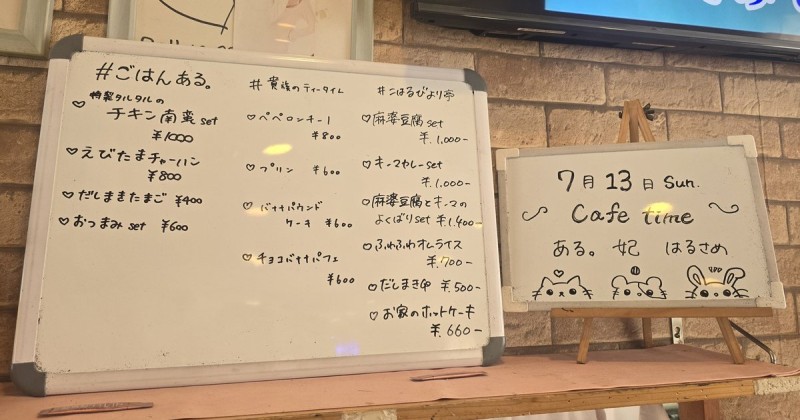 #ごはんある。
♡特製タルタルの
チキン南蛮set
¥1000
♡えびたまチャーハン
¥800
♡だしまきたまご ¥400
♡おつまみset ¥600
#貴族のティータイム
♡ペペロンチーノ
¥800
♡プリン ¥600
♡バナナパウンド
ケーキ ¥600
♡チョコバナナパフェ
¥600
#こはるびより亭
♡麻婆豆腐set
¥.1,000-
♡キーマカレーset
¥.1,000-
♡麻婆豆腐とキーマの
よくばりset ¥.1,400-
♡ふわふわオムライス
¥.700-
♡だし巻き卵 ¥.500-
♡お家のホットケーキ
¥.660-
7月13日 Sun.
Cafe time
ある。 妃 はるさめ